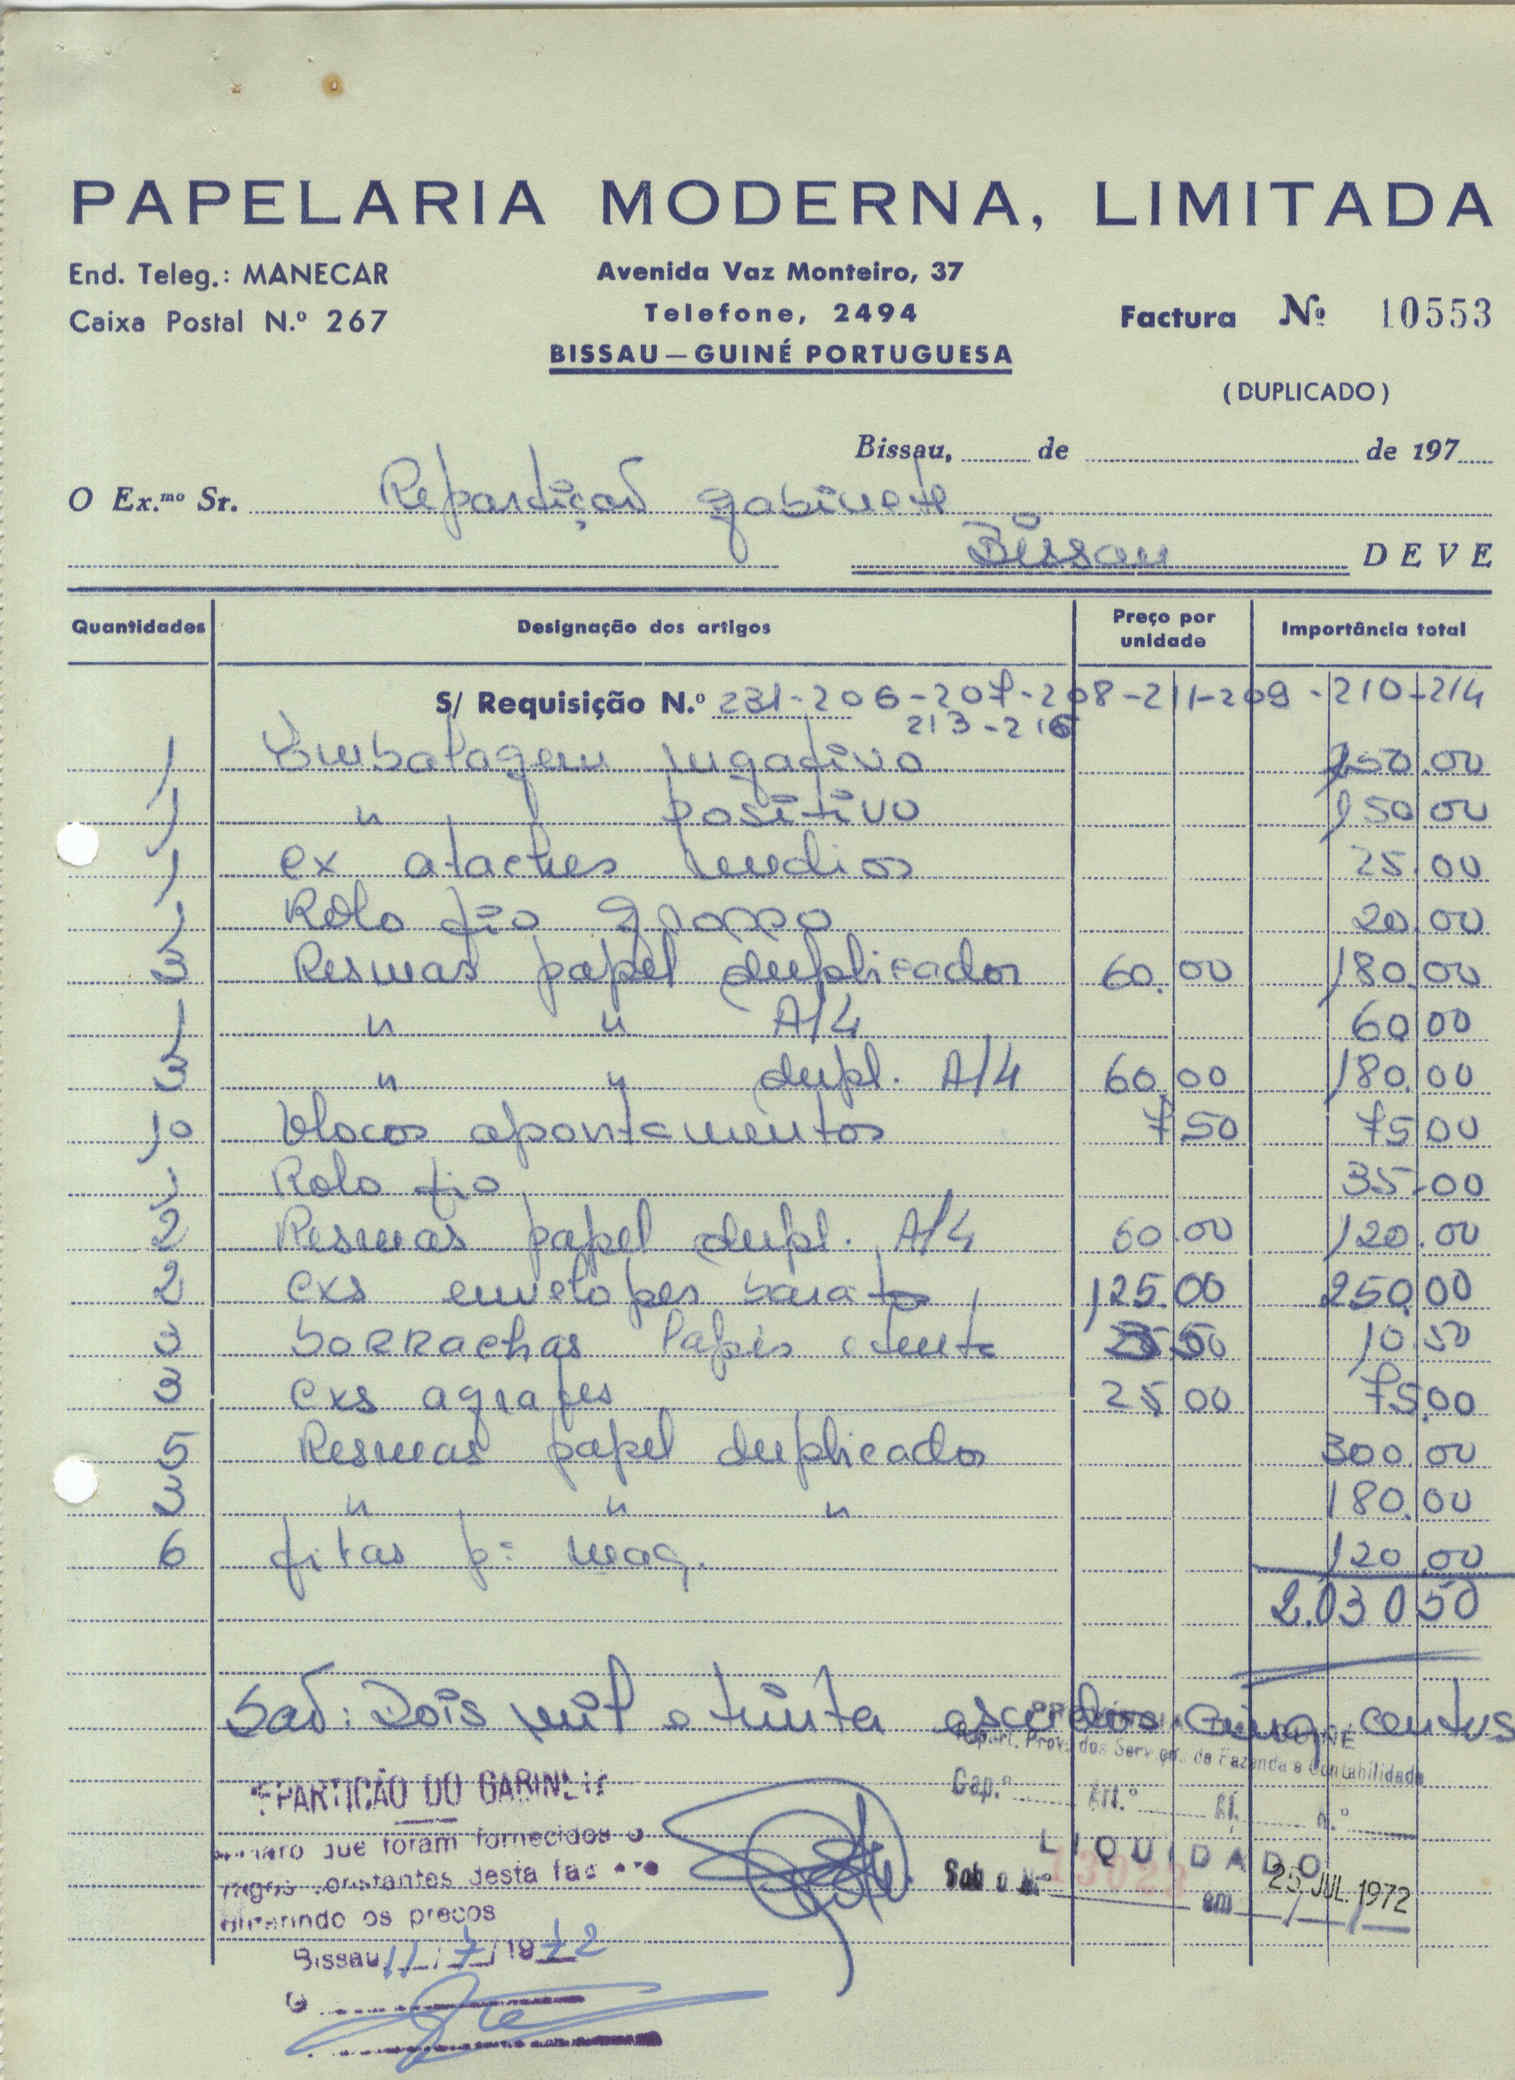 PAPELARIA MODERNA, LIMITADA
End. Teleg.: MANECAR
Caixa Postal N.º 267
Avenida Vaz Monteiro, 37
Telefone, 2494
BISSAU — GUINÉ PORTUGUESA
Factura Nº 10553
(DUPLICADO)
Bissau, de de 197
O Ex.mo Sr. Repartição gabinete
Bissau DEVE
Quantidades Designação dos artigos Preço por unidade Importância total
S/ Requisição N.º 231-206-207-208-211-209-210-214
213-216
1 Embalagem 250.00
1 " positivo 150.00
1 cx ataches medios 25.00
1 Rolo fio grosso 20.00
3 Resmas papel duplicador 60.00 180.00
1 " " A/4 60.00
3 " " dupl. A/4 60.00 180.00
10 blocos apontamentos 7 50 75 00
1 Rolo fio 35.00
2 Resmas papel dupl. A/4 60.00 120.00
2 cxs envelopes barato 125.00 250.00
3 borrachas lapis e tinta 10.50
3 cxs agrafes 25.00 75.00
5 Resmas papel duplicador 300.00
3 " " " 180.00
6 fitas p: maq. 120.00
2.030 50
São: Dois mil e trinta escudos cinq. centvs
REPARTIÇÃO DO GABINETE
que foram fornecidos o
constantes desta
os preços
Bissau 11/7/1972
O
Repart. Prov. dos Serviços de Fazenda e Contabilidade
Cap.º Art.º n.º
LIQUIDADO
Sob o N.º 13023 em 25 JUL. 1972